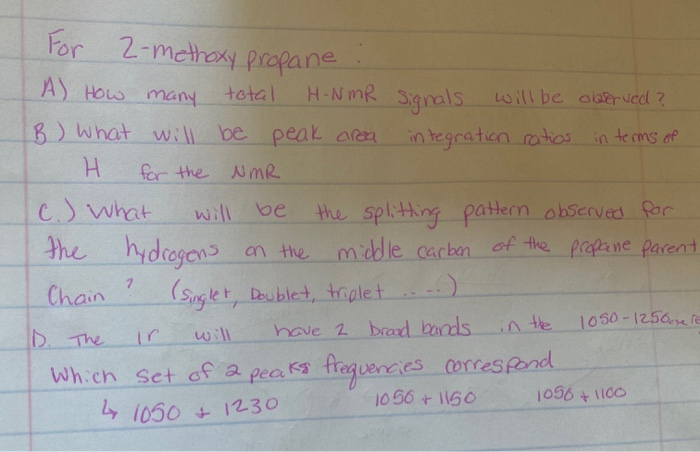 For 2-methoxy propane :
A) How many total H-NMR signals will be observed?
B) What will be peak area integration ratios in terms of
H for the NMR
C.) What will be the splitting pattern observed for
the hydrogens on the middle carbon of the propane parent
Chain? (Singlet, Doublet, triplet .....)
D. The Ir will have 2 broad bands in the 1050-1250
Which set of 2 peaks frequencies correspond
↳ 1050 + 1230 1050 + 1150 1050 + 1100